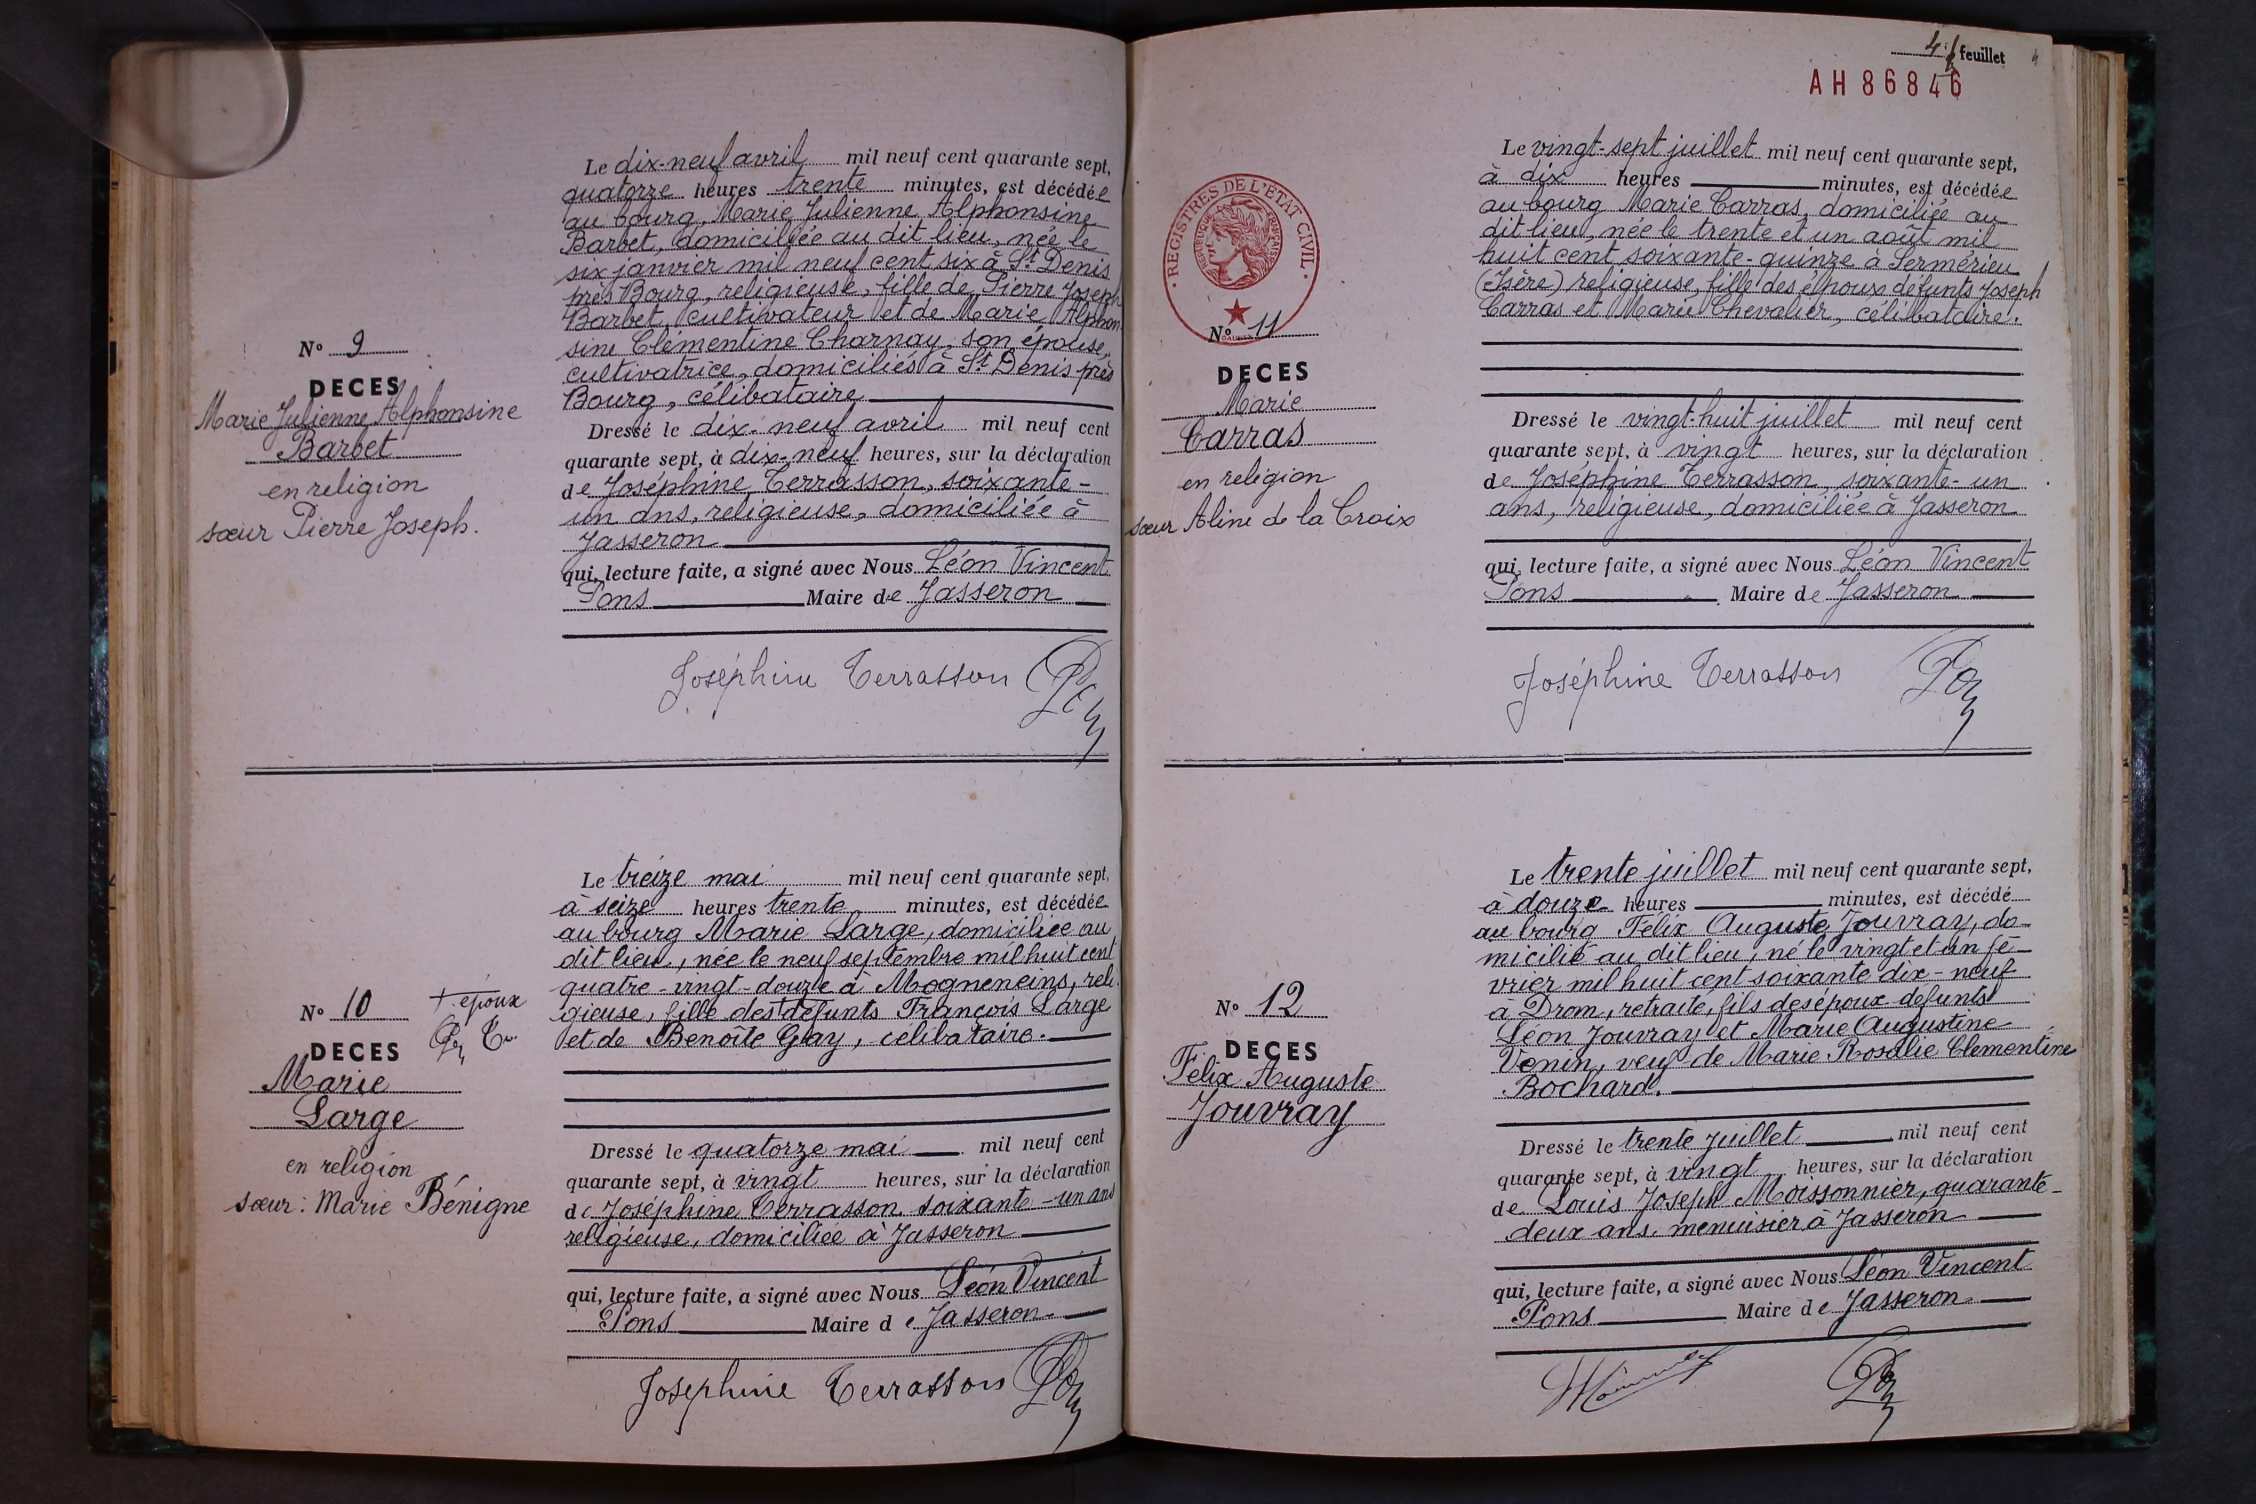 Le dix-neuf avril mil neuf cent quarante sept,
quatorze heures trente minutes, est décédée
au bourg, Marie Julienne Alphonsine
Barbet, domiciliée au dit lieu, née le
six janvier mil neuf cent six à St Denis
près Bourg, religieuse, fille de Pierre Joseph
Barbet, cultivateur et de Marie Alphon
sine Clémentine Charnay, son épouse,
cultivatrice, domiciliés à St Denis près
Bourg, célibataire
Dressé le dix-neuf avril mil neuf cent
quarante sept, à dix-neuf heures, sur la déclaration
de Joséphine Terrasson, soixante-
un ans, religieuse, domiciliée à
Jasseron
qui, lecture faite, a signé avec Nous Léon Vincent
Pons Maire de Jasseron
Joséphine Terrasson
N° 9
DECES
Marie Julienne Alphonsine
Barbet
en religion
sœur Pierre Joseph.
Le treize mai mil neuf cent quarante sept,
à seize heures trente minutes, est décédée
au bourg Marie Large, domiciliée au
dit lieu, née le neuf septembre mil huit cent
quatre-vingt-douze à Mogneneins, reli
gieuse, fille des + défunts François Large
et de Benoîte Gay, célibataire.
Dressé le quatorze mai mil neuf cent
quarante sept, à vingt heures, sur la déclaration
de Joséphine Terrasson soixante-un ans
religieuse, domiciliée à Jasseron
qui, lecture faite, a signé avec Nous Léon Vincent
Pons Maire de Jasseron
Joséphine Terrasson
N° 10
+ époux
DECES
Marie
Large
en religion
sœur: Marie Bénigne
4 feuillet
AH 86846
REGISTRES DE L'ETAT CIVIL
Le vingt-sept juillet mil neuf cent quarante sept,
à dix heures minutes, est décédée
au bourg Marie Carras, domiciliée au
dit lieu, née le trente et un août mil
huit cent soixante-quinze à Sermérieu
(Isère) religieuse, fille des époux défunts Joseph
Carras et Marie Chevalier, célibataire.
Dressé le vingt-huit juillet mil neuf cent
quarante sept, à vingt heures, sur la déclaration
de Joséphine Terrasson, soixante-un
ans, religieuse, domiciliée à Jasseron
qui, lecture faite, a signé avec Nous Léon Vincent
Pons Maire de Jasseron
Joséphine Terrasson
N° 11
DECES
Marie
Carras
en religion
sœur Aline de la Croix
Le trente juillet mil neuf cent quarante sept,
à douze heures minutes, est décédé
au bourg Félix Auguste Jouvray, do-
micilié au dit lieu, né le vingt et un fé-
vrier mil huit cent soixante dix-neuf
à Drom, retraité, fils des époux défunts
Léon Jouvray et Marie Augustine
Venin, veuf de Marie Rosalie Clementine
Bochard.
Dressé le trente juillet mil neuf cent
quarante sept, à vingt heures, sur la déclaration
de Louis Joseph Moissonnier, quarante-
deux ans, menuisier à Jasseron
qui, lecture faite, a signé avec Nous Léon Vincent
Pons Maire de Jasseron
N° 12
DECES
Félix Auguste
Jouvray